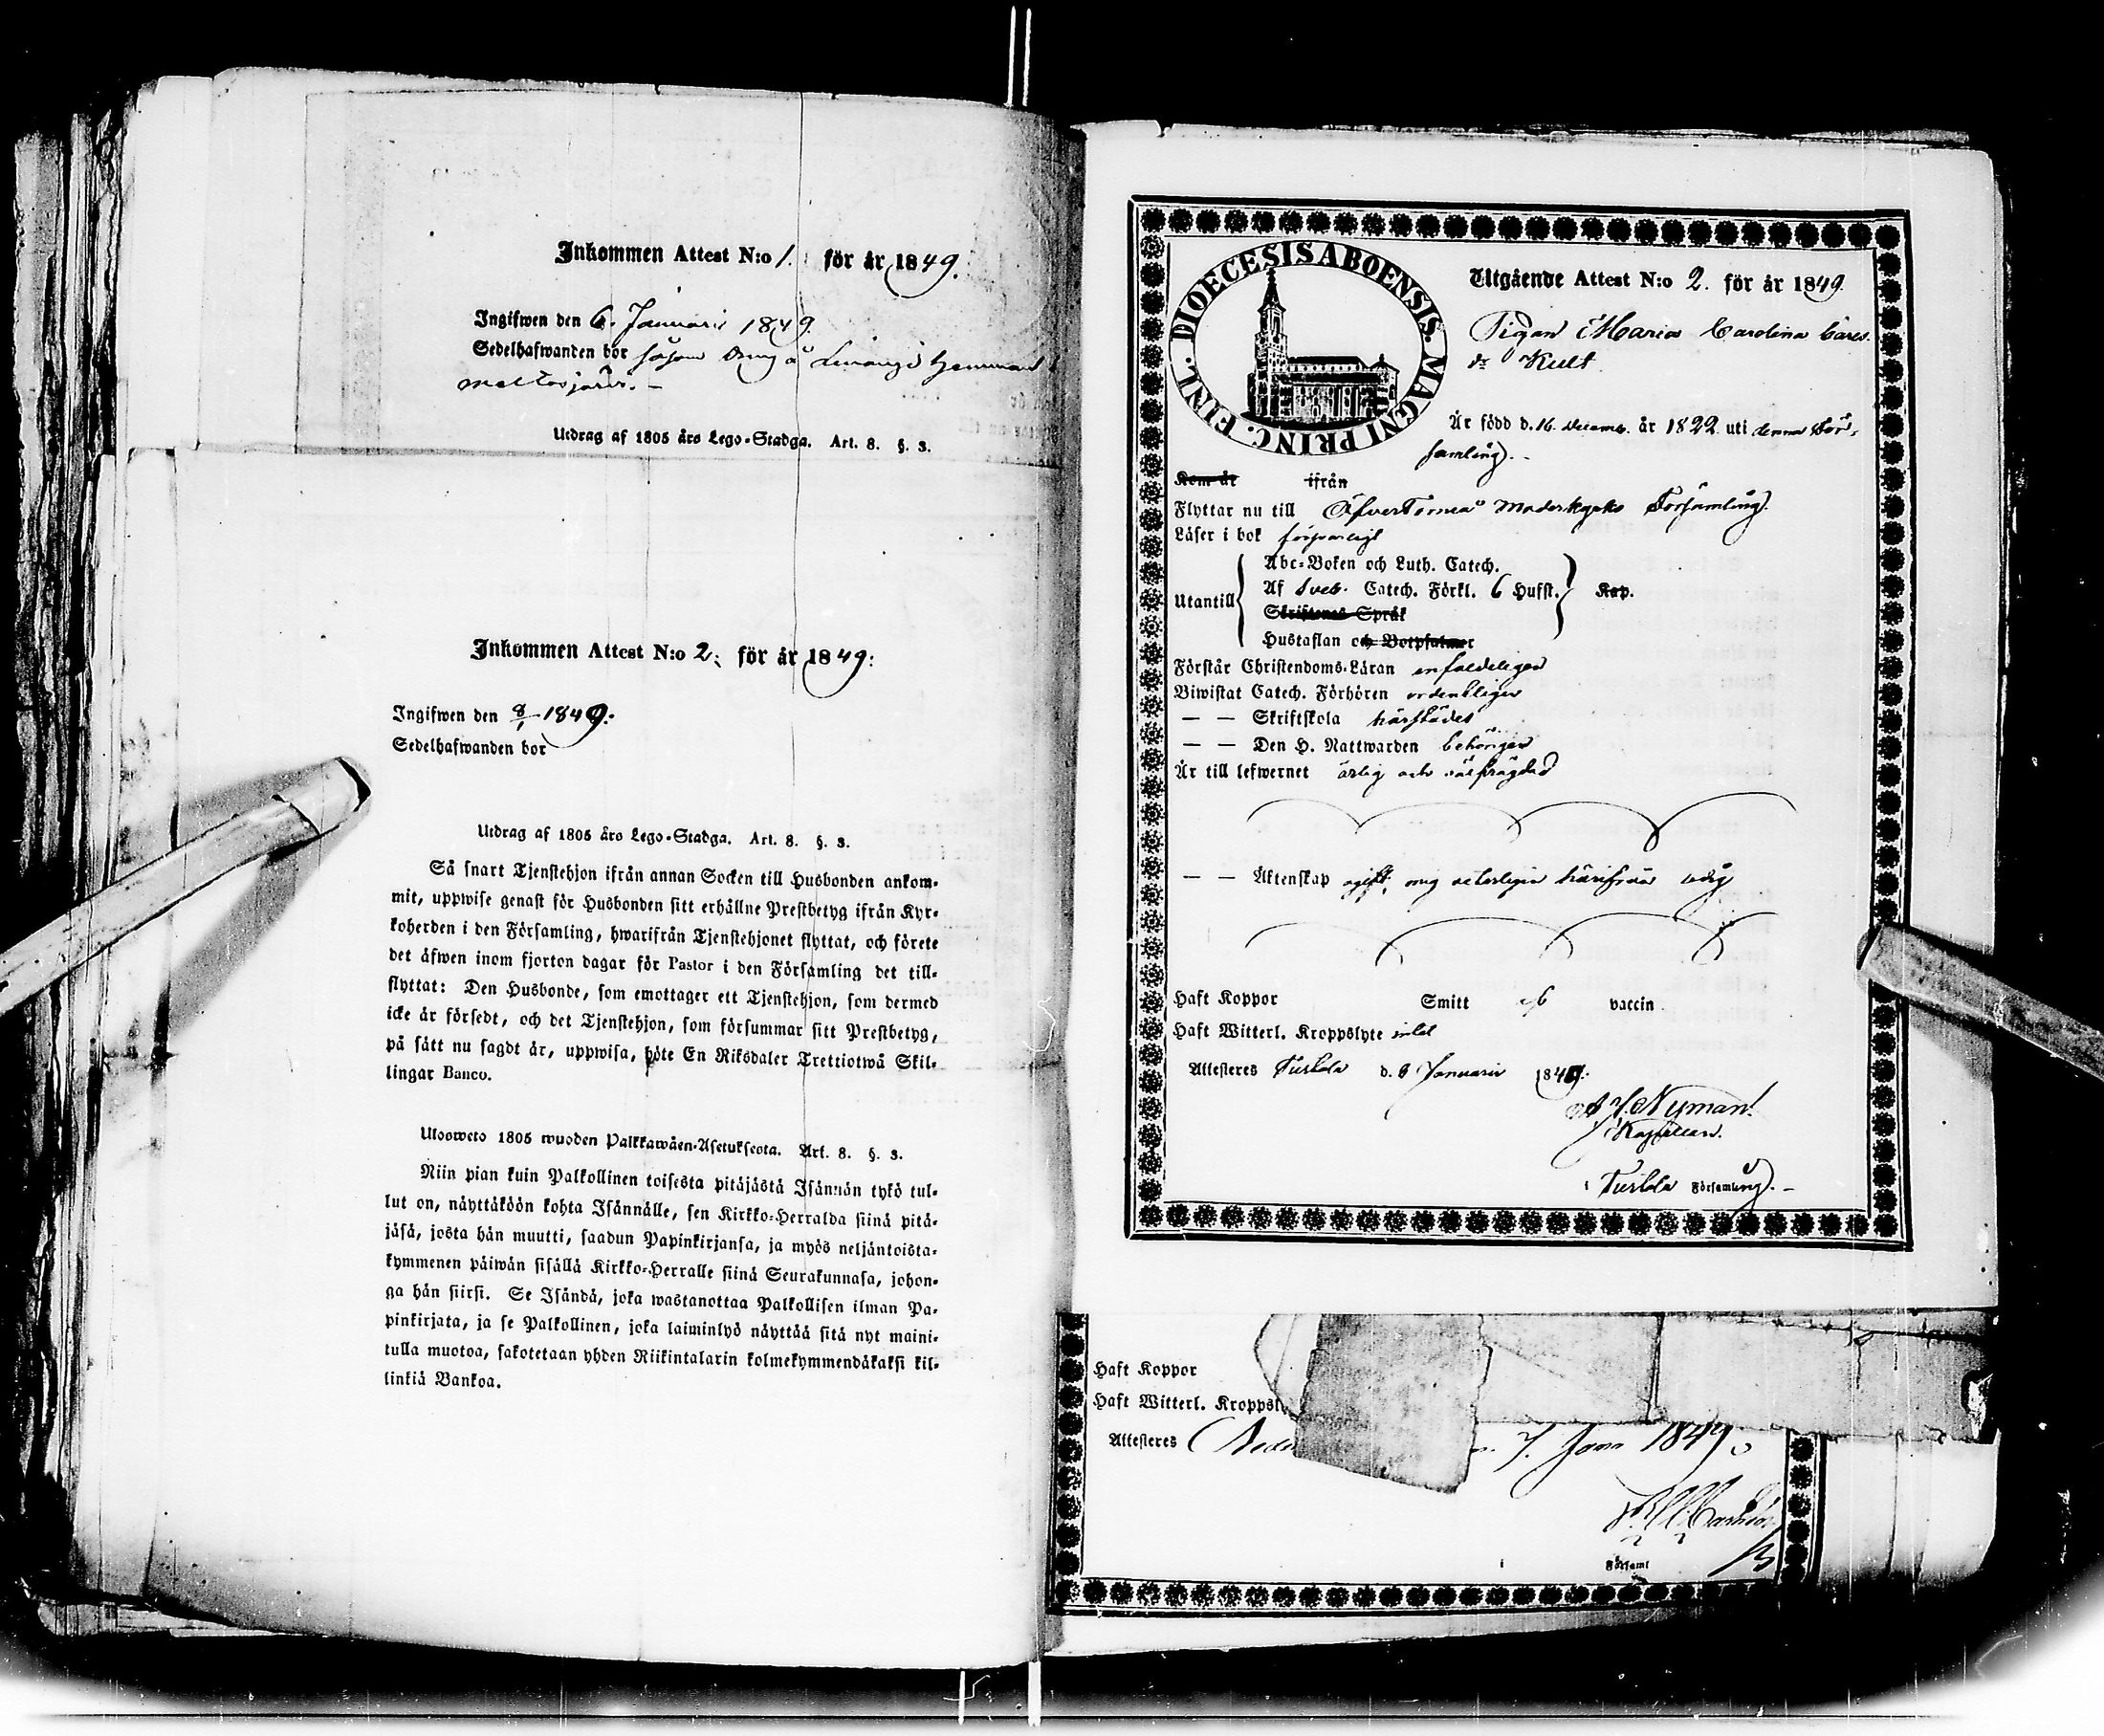 Inkommen Attest N:o 1. för år 1849.
Ingifwen den 6. Januari 1849.
Sedelhafwanden bor såsom Dräng å Hemman i
Utdrag af 1805 års Lego-Stadga. Art. 8. §. 3.
Inkommen Attest N:o 2: för år 1849:
Ingifwen den 8/1 1849:
Sedelhafwanden bor
Utdrag af 1805 års Lego-Stadga. Art. 8. §. 3.
Så snart Tjenstehjon ifrån annan Socken till Husbonden ankom-
mit, uppwise genast för Husbonden sitt erhållne Prestbetyg ifrån Kyr-
koherden i den Församling, hwarifrån Tjenstehjonet flyttat, och förete
det äfwen inom fjorton dagar för Pastor i den Församling det till-
flyttat: Den Husbonde, som emottager ett Tjenstehjon, som dermed
icke är försedt, och det Tjenstehjon, som försummar sitt Prestbetyg,
på sätt nu sagdt är, uppwisa, böte En Riksdaler Trettiotwå Skil-
lingar Banco.
Ulosweto 1805 wuoden Palkkawäen-Asetuksesta. Art. 8. §. 3.
Niin pian kuin Palkollinen toisesta pitäjästä Isännän tykö tul-
lut on, näyttäköön kohta Isännälle, sen Kirkko-Herralda siinä pitä-
jäsä, josta hän muutti, saadun Papinkirjansa, ja myös neljäntoista-
kymmenen päiwän sisällä Kirkko-Herralle siinä Seurakunnasa, johon-
ga hän siirsi. Se Isändä, joka wastanottaa Palkollisen ilman Pa-
pinkirjata, ja se Palkollinen, joka laiminlyö näyttää sitä nyt maini-
tulla muotoa, sakotetaan yhden Riikintalarin kolmekymmendäkaksi kil-
linkiä Bankoa.
DIOECESIS ABOENSIS. MAGNI PRINC. FINL.
Utgående Attest N:o 2. för år 1849.
Pigan Maria Carolina Cares.
dr Kult
Är född d. 16 Decemb. år 1822 uti denna För-
samling. -
Kom år ifrån
Flyttar nu till ÖfverTorneå Moderkyrko Församling.
Läser i bok försvarligt
Utantill
Abc-Boken och Luth. Catech.
Af Sveb. Catech. Förkl. 6 Hufst. Kap.
Skriftenes Språk
Hustaflan och Botpsalmer
Förstår Christendoms-Läran enfaldeligen
Biwistat Catech. Förhören ordentligen
— — Skriftskola härstädes
— — Den H. Nattwarden behörigen
Är till lefwernet ärlig och välfrägdad
— — Äktenskap ogift, mig veterligen härifrån ledig
Haft Koppor Smitt af vaccin.
Haft Witterl. Kroppslyte intet
Attesteres Turtola d. 6 Januarii 1849.
Nyman.
Kapellan.
i Turtola Församling. -
Haft Koppor
Haft Witterl. Kroppsl
Attesteres Neder 7. Janu 1849
i Församl